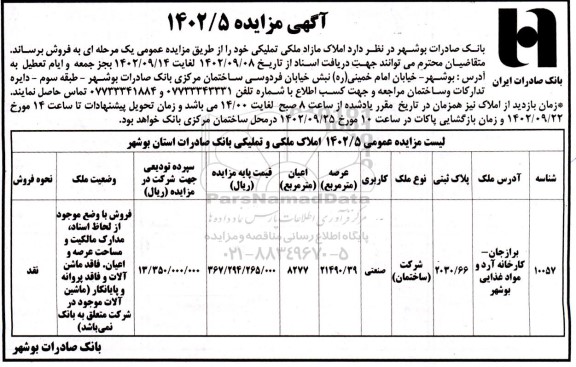 آگهی مزایده ۱۴۰۲/۵
بانک صادرات ایران
بانک صادرات بوشهر در نظر دارد املاک مازاد ملکی تملیکی خود را از طریق مزایده عمومی یک مرحله ای به فروش برساند.
متقاضیان محترم می توانند جهت دریافت اسناد از تاریخ ۱۴۰۲/۰۹/۰۸ لغایت ۱۴۰۲/۰۹/۱۴ بجز جمعه و ایام تعطیل به
آدرس : بوشهر - خیابان امام خمینی(ره) نبش خیابان فردوسی ساختمان مرکزی بانک صادرات بوشهر - طبقه سوم - دایره
تدارکات وساختمان مراجعه و جهت کسب اطلاع با شماره تلفن ۰۷۷۳۳۳۴۳۳۳۱ و ۰۷۷۳۳۳۴۱۸۸۴ تماس حاصل نمایند.
*زمان بازدید از املاک نیز همزمان در تاریخ مقرر یادشده از ساعت ۸ صبح لغایت ۱۴/۰۰ می باشد و زمان تحویل پیشنهادات تا ساعت ۱۴ مورخ
۱۴۰۲/۰۹/۲۲ و زمان بازگشایی پاکات در ساعت ۱۰ مورخ ۱۴۰۲/۰۹/۲۵ درمحل ساختمان مرکزی بانک خواهد بود.
لیست مزایده عمومی ۱۴۰۲/۵ املاک ملکی و تملیکی بانک صادرات استان بوشهر
شناسه آدرس ملک پلاک ثبتی نوع ملک کاربری عرصه (مترمربع) اعیان (مترمربع) قیمت پایه مزایده (ریال) سپرده تودیعی جهت شرکت در مزایده (ریال) وضعیت ملک نحوه فروش
۱۰۰۵۷ برازجان– کارخانه آرد و مواد غذایی بوشهر ۲۰۳۰/۶۶ شرکت (ساختمان) صنعتی ۲۱۴۹۰/۳۹ ۸۲۷۷ ۳۶۷/۲۹۴/۲۶۵/۰۰۰ ۱۳/۳۵۰/۰۰۰/۰۰۰ فروش با وضع موجود از لحاظ اسناد، مدارک مالکیت و مساحت عرصه و اعیان. فاقد ماشن آلات و فاقد پروانه و پایانکار (ماشین آلات موجود در شرکت متعلق به بانک نمی‌باشد) نقد
ParsNamadData
پایگاه اطلاع رسانی مناقصه و مزایده
۰۲۱-۸۸۳۴۹۶۷۰-۵
بانک صادرات بوشهر